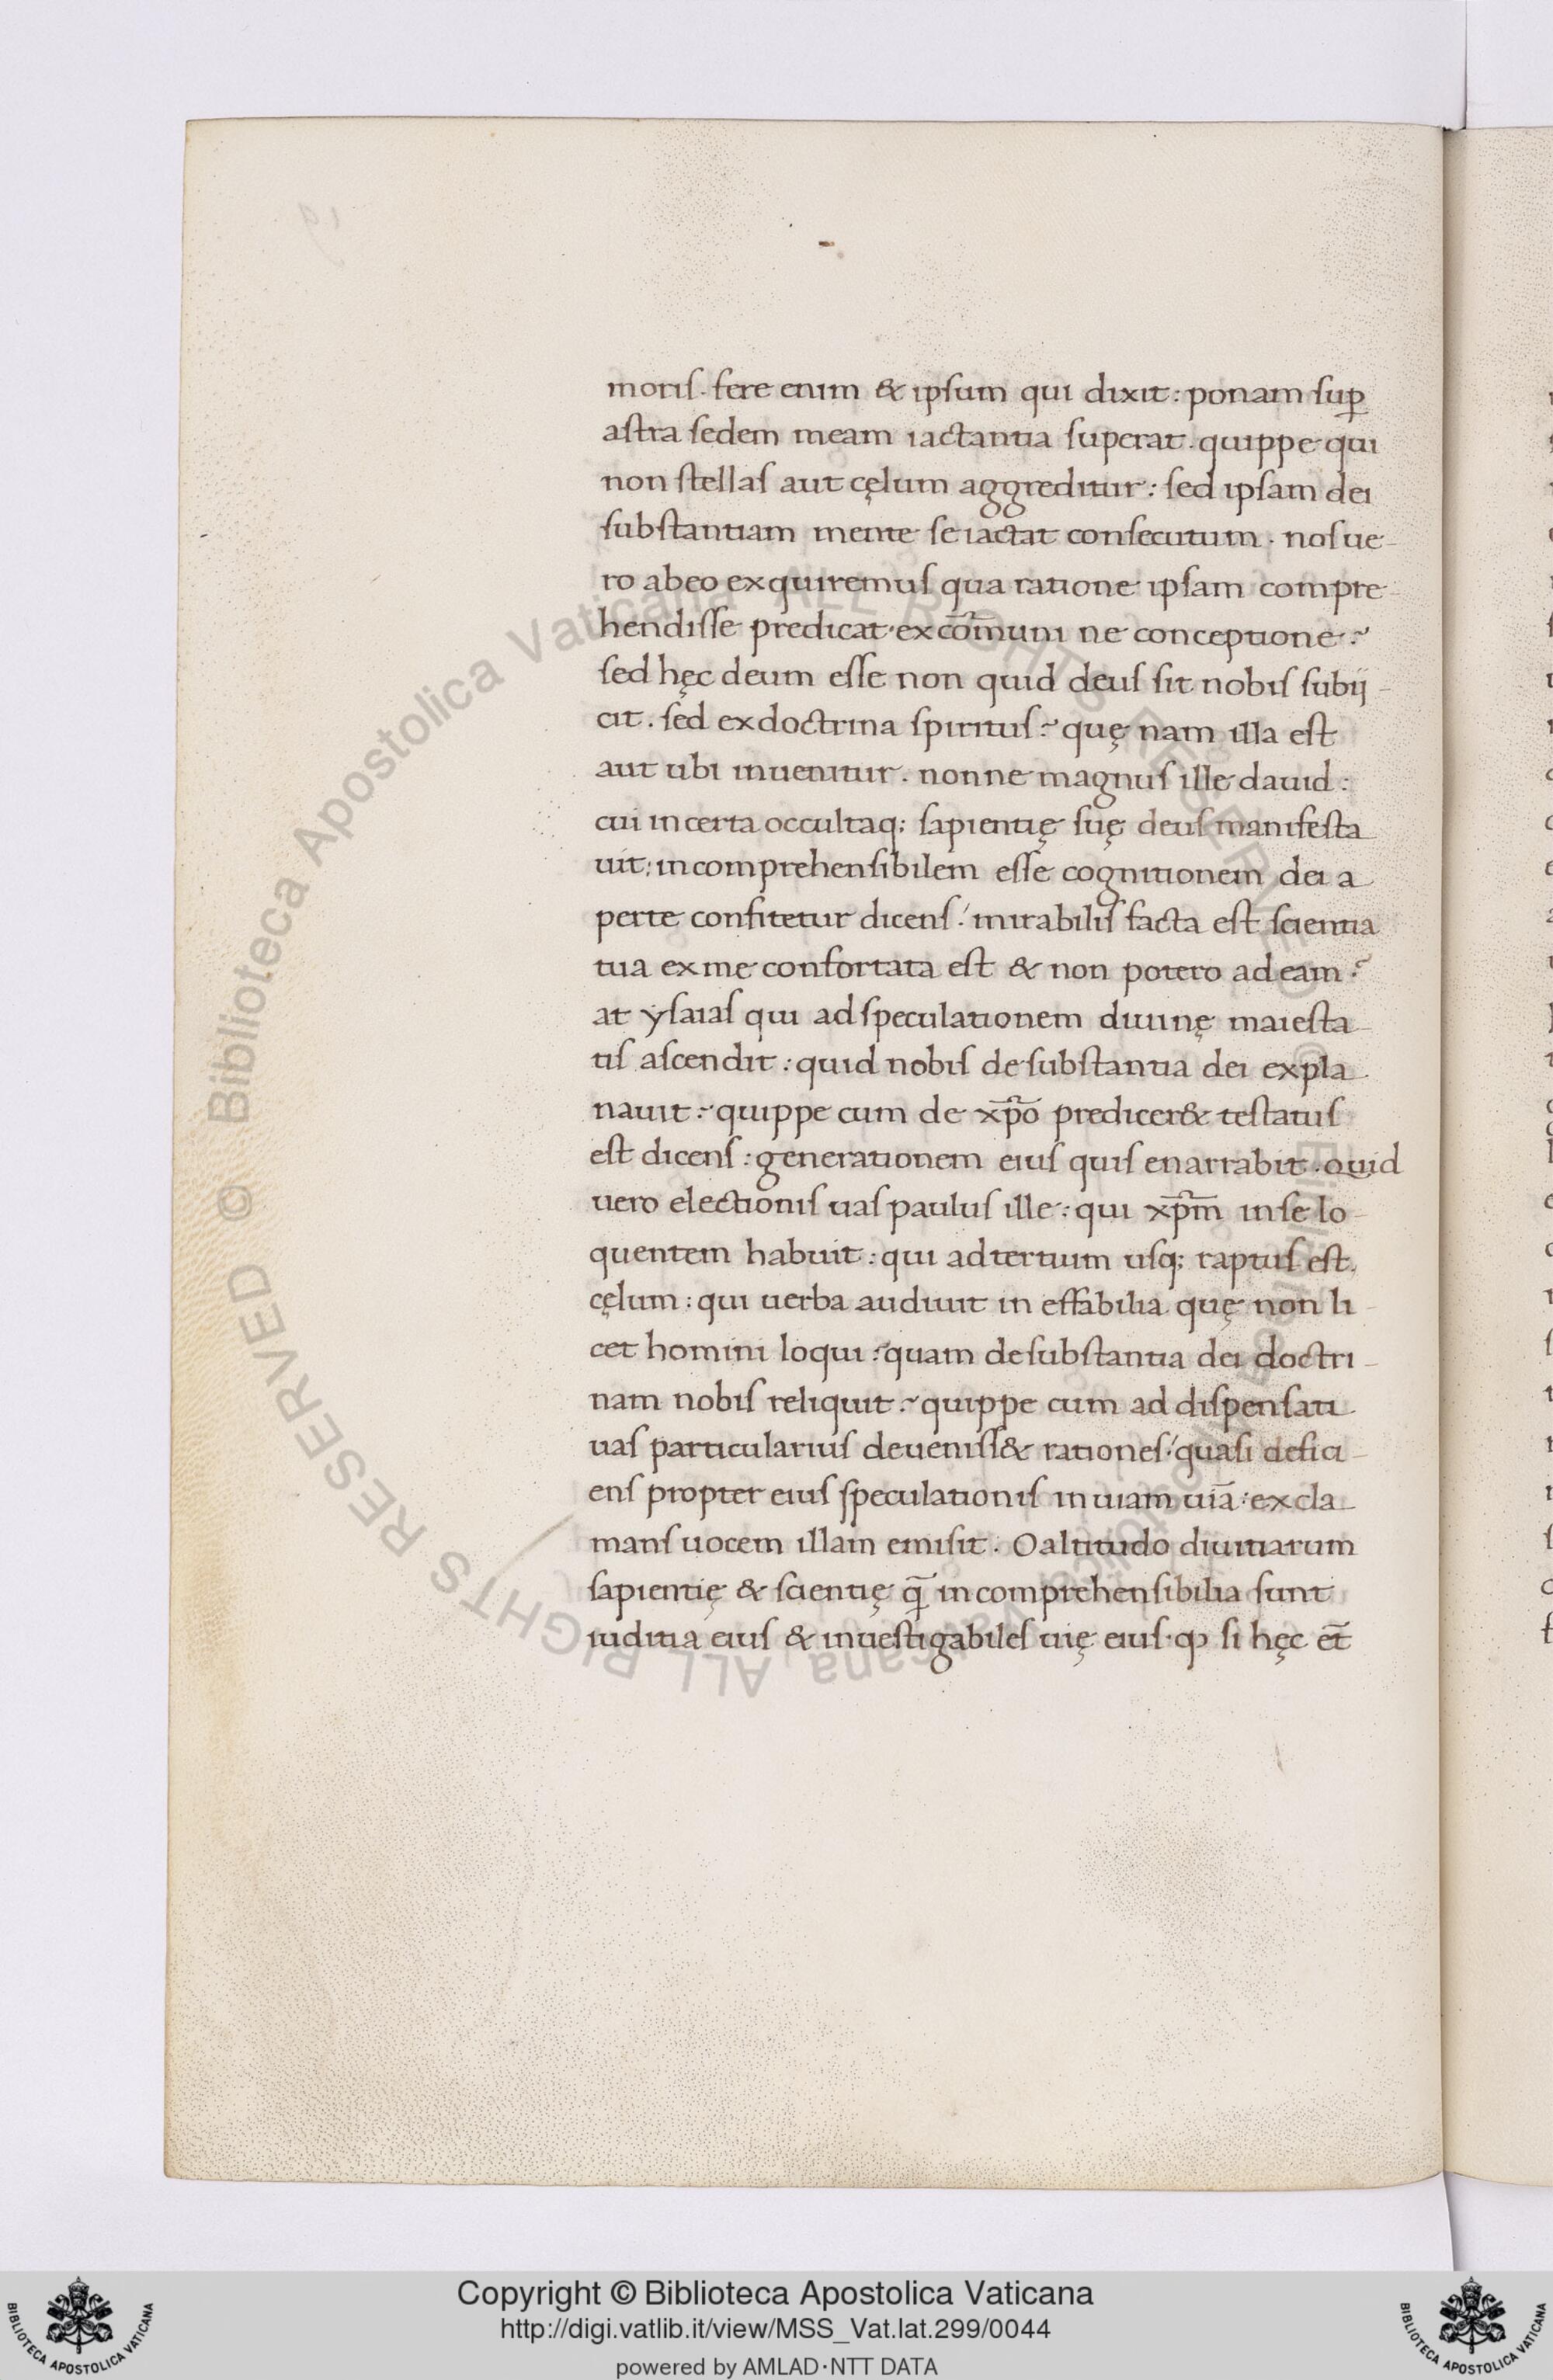 moriſ. fere enim & ipſum qui dixit: ponam ſuꝑ
aſtra ſedem meam iactantia ſuperat. quippe qui
non ſtellaſ aut cęlum aggreditur: ſed ipſam dei
ſubſtantiam mente ſe iactat conſecutum. noſ ue-
ro ab eo exquiremuſ qua ratione ipſam compre-
hendiſſe predicat. ex cōmuni ne conceptione?
ſed hęc deum eſſe non quid deuſ ſit nobiſ ſubij-
cit. ſed ex doctrina ſpirituſ? quę nam illa eſt
aut ubi inuenitur. nonne magnuſ ille dauid:
cui incerta occultaq; ſapientię ſuę deuſ manifeſta
uit: incomprehenſibilem eſſe cognitionem dei a
perte confitetur dicenſ: mirabiliſ facta eſt ſcientia
tua ex me confortata eſt & non potero ad eam?
at yſaiaſ qui ad ſpeculationem diuinę maieſta-
tiſ aſcendit: quid nobiſ de ſubſtantia dei expla-
nauit? quippe cum de xp̄o predicer& teſtatuſ
eſt dicenſ: generationem eiuſ quiſ enarrabit. quid
uero electioniſ uaſ pauluſ ille: qui xp̄m in ſe lo-
quentem habuit: qui ad tertium uſq; raptuſ eſt
cęlum: qui uerba audiuit in effabilia quę non li-
cet homini loqui: quam de ſubſtantia dei doctri-
nam nobiſ reliquit? quippe cum ad diſpenſati
uaſ particulariuſ deueniſſ& rationeſ: quaſi defici-
enſ propter eiuſ ſpeculationiſ inuiam uiā: excla-
manſ uocem illam emiſit. O altitudo diuitiarum
ſapientię & ſcientię q̄ incomprehenſibilia ſunt
iuditia eiuſ & inueſtigabileſ uię eiuſ. ꝙ ſi hęc et̄
Copyright © Biblioteca Apostolica Vaticana
http://digi.vatlib.it/view/MSS_Vat.lat.299/0044
powered by AMLAD·NTT DATA
BIBLIOTECA APOSTOLICA VATICANA
BIBLIOTECA APOSTOLICA VATICANA
© Biblioteca Apostolica Vaticana, ALL RIGHTS RESERVED